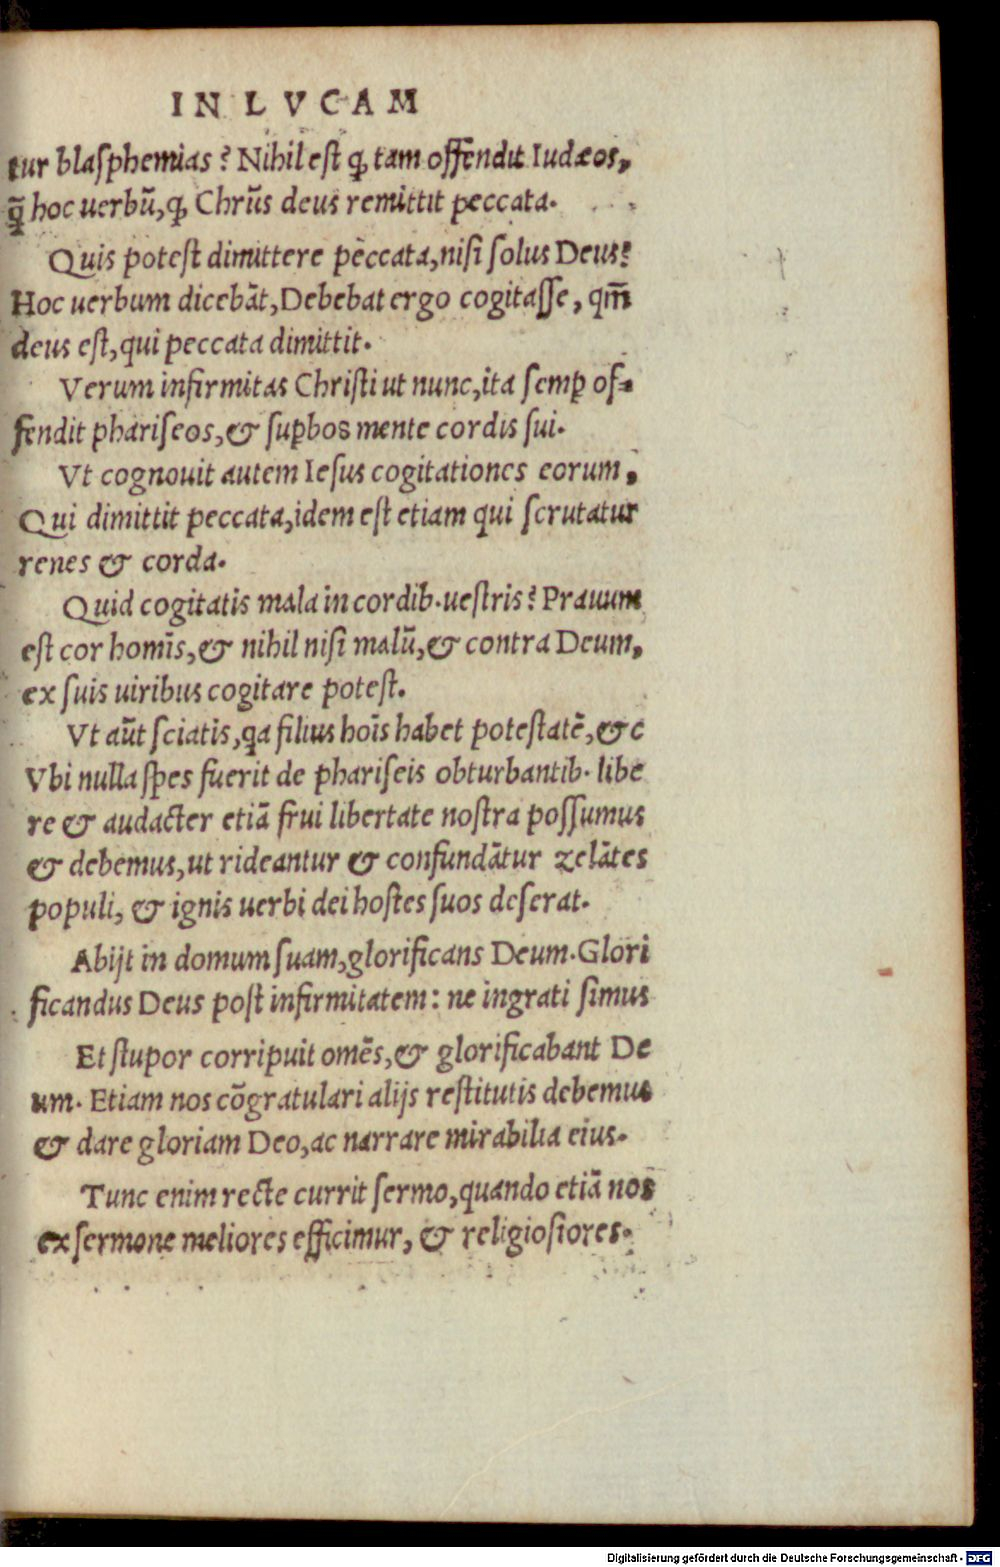 IN LVCAM
tur blasphemias? Nihil est ꝙ tam offendit Iudæos,
q̄ hoc uerbū, ꝙ Chrūs deus remittit peccata.
Quis potest dimittere peccata, nisi solus Deus?
Hoc uerbum dicebāt, Debebat ergo cogitasse, qm̄
deus est, qui peccata dimittit.
Verum infirmitas Christi ut nunc, ita semꝑ of-
fendit phariseos, & suꝑbos mente cordis sui.
Vt cognouit autem Iesus cogitationes eorum,
Qui dimittit peccata, idem est etiam qui scrutatur
renes & corda.
Quid cogitatis mala in cordib. uestris? Prauum
est cor homīs, & nihil nisi malū, & contra Deum,
ex suis uiribus cogitare potest.
Vt aūt sciatis, qa filius hoīs habet potestatē, &c
Vbi nulla spes fuerit de phariseis obturbantib. libe
re & audacter etiā frui libertate nostra possumus
& debemus, ut rideantur & confundātur zelātes
populi, & ignis uerbi dei hostes suos deserat.
Abijt in domum suam, glorificans Deum. Glori
ficandus Deus post infirmitatem: ne ingrati simus
Et stupor corripuit omēs, & glorificabant De
um. Etiam nos cōgratulari alijs restitutis debemus
& dare gloriam Deo, ac narrare mirabilia eius.
Tunc enim recte currit sermo, quando etiā nos
ex sermone meliores efficimur, & religiosiores.
Digitalisierung gefördert durch die Deutsche Forschungsgemeinschaft - DFG